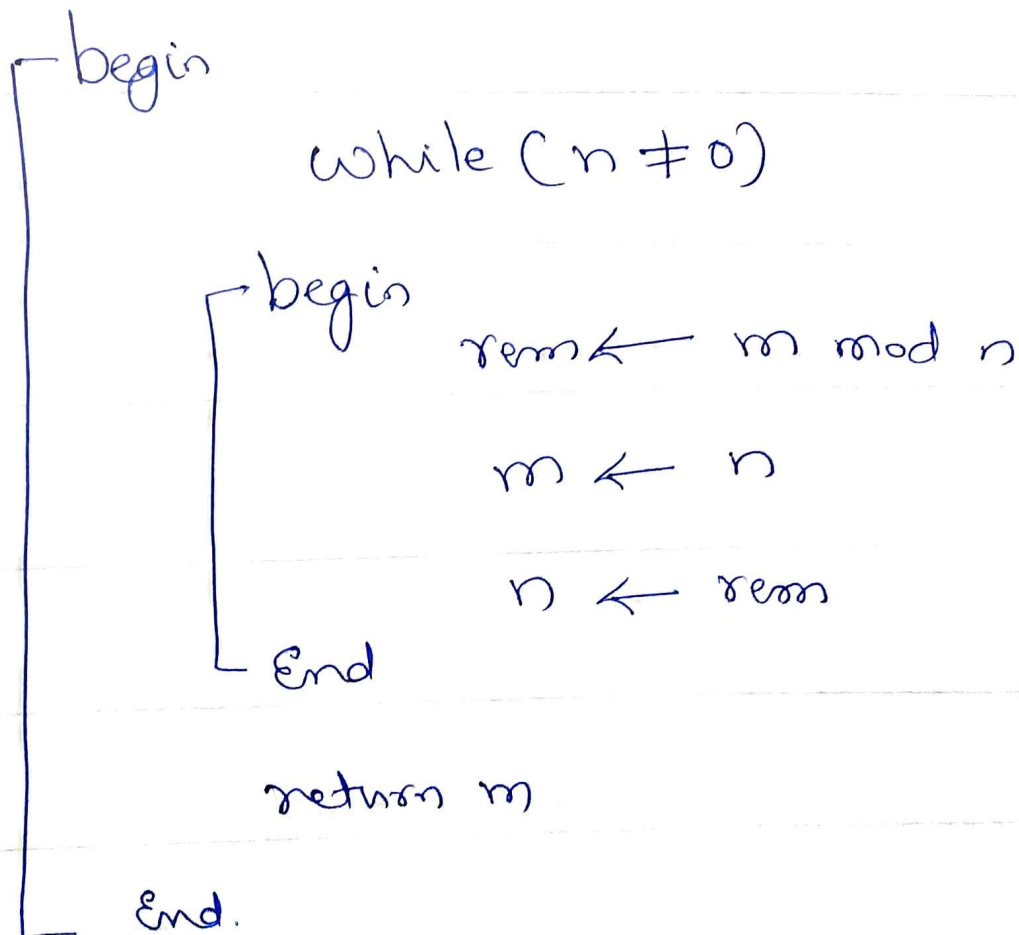 begin
while (n ≠ 0)
begin
rem ← m mod n
m ← n
n ← rem
End
return m
End.